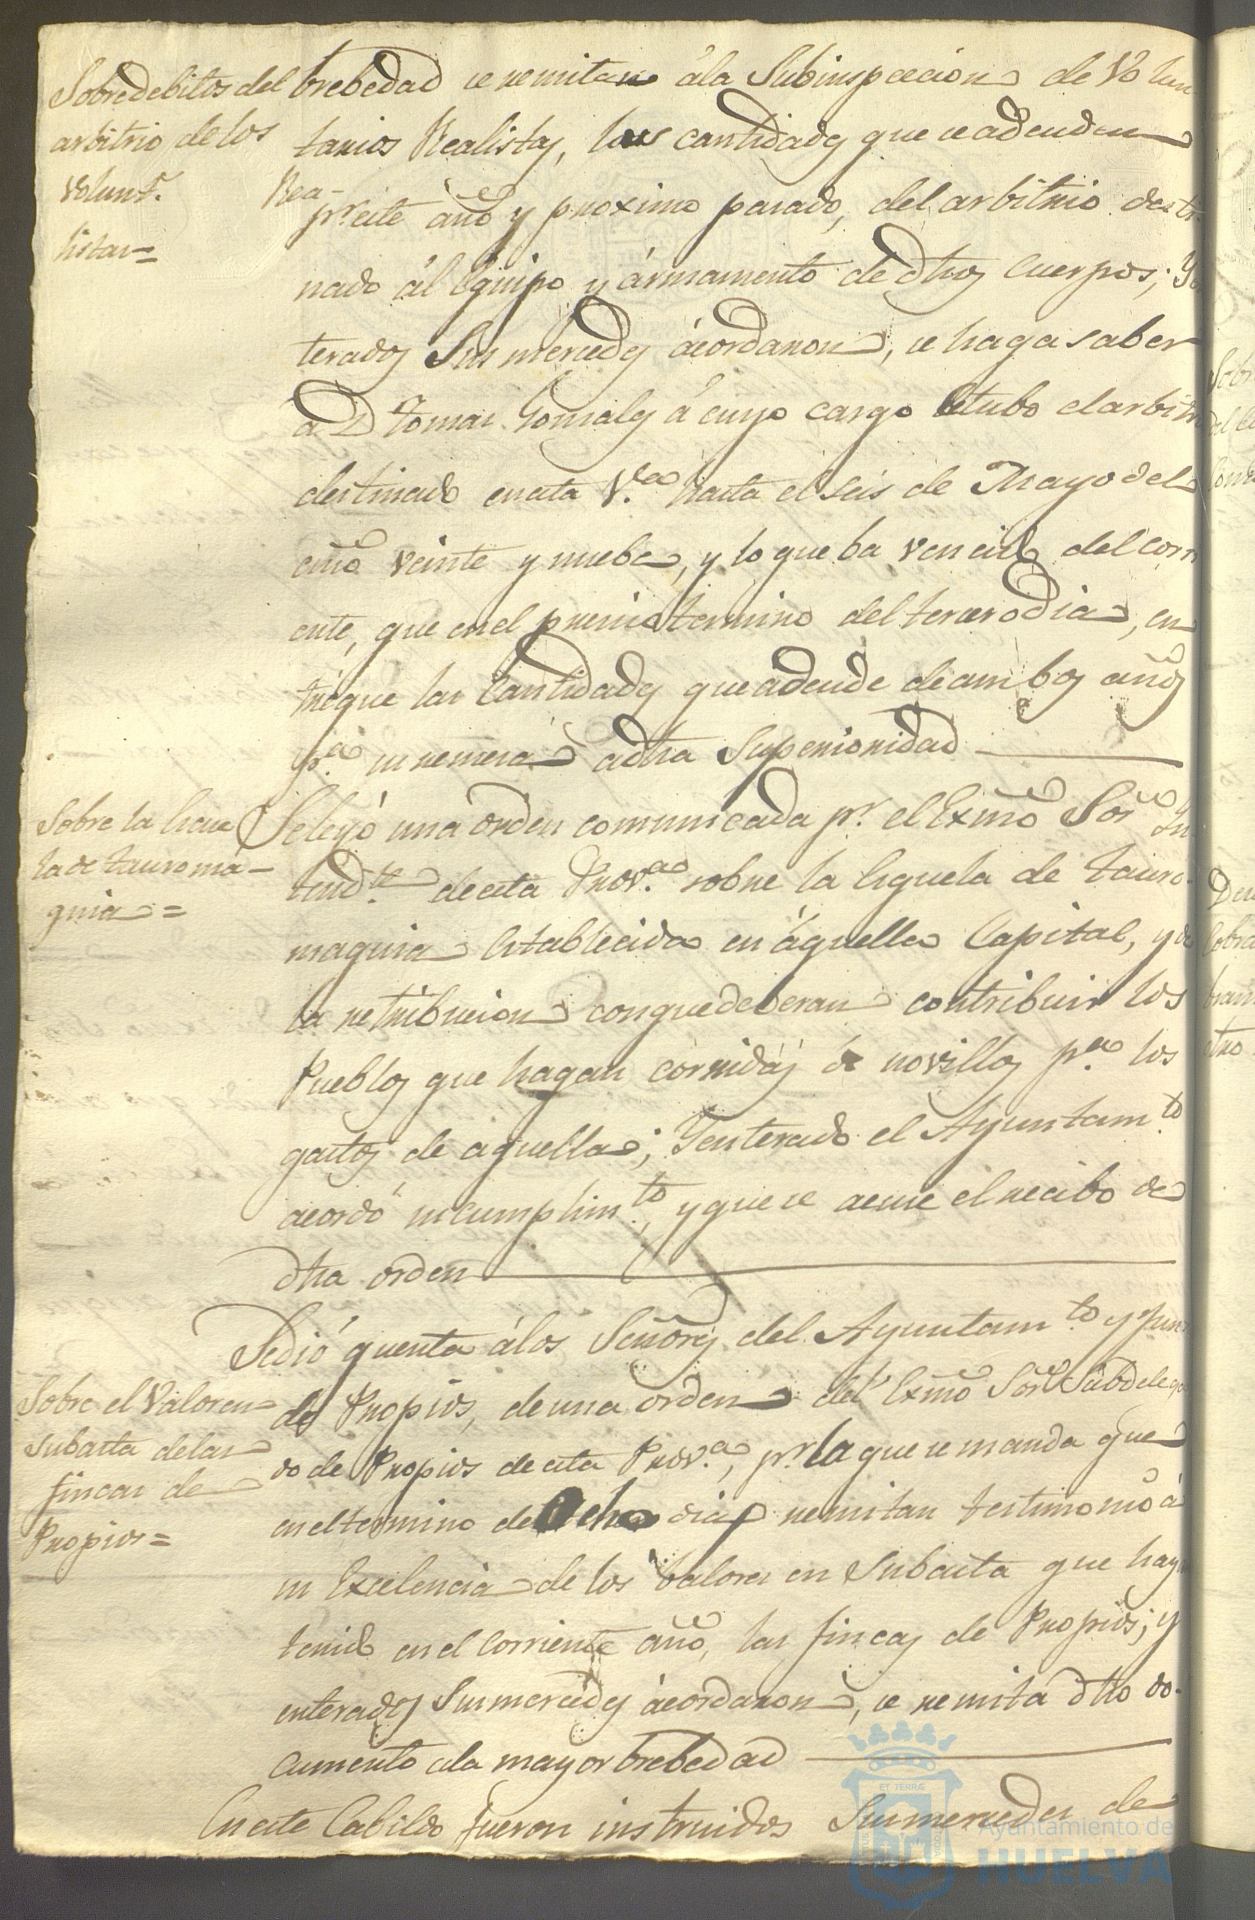 Sobre debitos del
arbitrio de los
Volunt.s Rea-
listas=
brebedad se remitan á la Subinspeccion de Volun
tarios Realistas, las cantidades que se adeuden
pr. este año y proximo pasado, del arbitrio desti
nado al Equipo y ármamento de dhos Cuerpos; Y en
terados Sus mercedes ácordaron, se haga saber
a D. Tomas Gonzales á cuyo cargo estubo el arbitrio
destinado en esta V.a hasta el seis de Mayo del
año veinte y nuebe, y lo que ba vencido del corri
ente, que en el preciso termino del tercero dia, en
tregue las Cantidades que adeude de ambos años
p.a su remesa a dha Superioridad
Sobre la Escue
la de tauroma-
quia=
Se leyó una orden comunicada pr. el Exmo Sor. In
tend.te de esta Prov.a sobre la Esquela de tauro-
maquia Establecida en áquella Capital, y de
la retribucion con que deberan contribuir los
Pueblos que hagan corridas de novillos p.a los
gastos de aquella; Y enterado el Ayuntam.to
acordó su cumplim.to, y que se acuse el recibo de
dha orden
Sobre el Valor en
subasta de las
fincas de
Propios=
Se dió quenta álos Señores del Ayuntam.to y Junta
de Propios, de una orden del Exmo Sor. Subdelega
do de Propios de esta Prov.a, pr. la que se manda que
en el termino de Ocho dias remitan testimonio á
su Excelencia de los balores en Subasta que hay
tenido en el Corriente año, las fincas de Propios; y
enterados Sus mercedes ácordaron, se remita dho do-
cumento ala mayor brebedad
En este Cabildo fueron instruidos Sus mercedes de
Ayuntamiento de
HUELVA